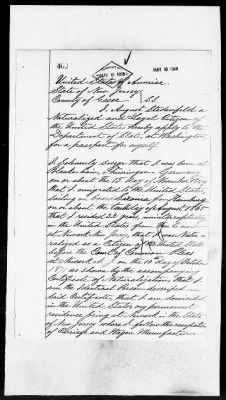 463
MAY 10 1898
MAY 10 1898
United States of America
State of New Jersey
County of Essex SS.
I, August
Naturalized and Loyal Citizen of
the United States hereby apply to the
Department of State, at Washington
for a passport for myself.
I solemnly swear that I was born at
Germany
on or about the 15 day of
that I emigrated to the United States
sailing on board from Hamburg
on or about the day of August
that I resided 22 years, uninterruptedly
in the United States from
at Newark New Jersey, that I was Natu-
ralized as a Citizen of the United States
before the Court of Common Pleas
at Newark N.J., on the 10 day of October
as shown by the accompanying
Certificate of Naturalization that I
am the identical Person described in
said Certificate, that I am domiciled
in the United States my permanent
residence being at Newark in the State
of New Jersey where I follow the occupation
of Carriage and Wagon Manufacturer